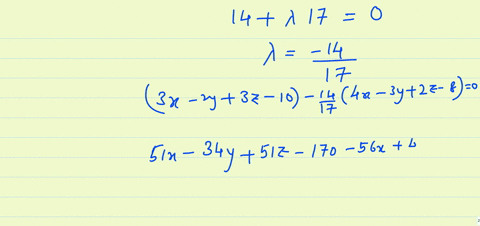 14 + λ 17 = 0
λ = -14/17
(3x - 2y + 3z - 10) - 14/17 (4x - 3y + 2z - 8) = 0
51x - 34y + 51z - 170 - 56x + 4